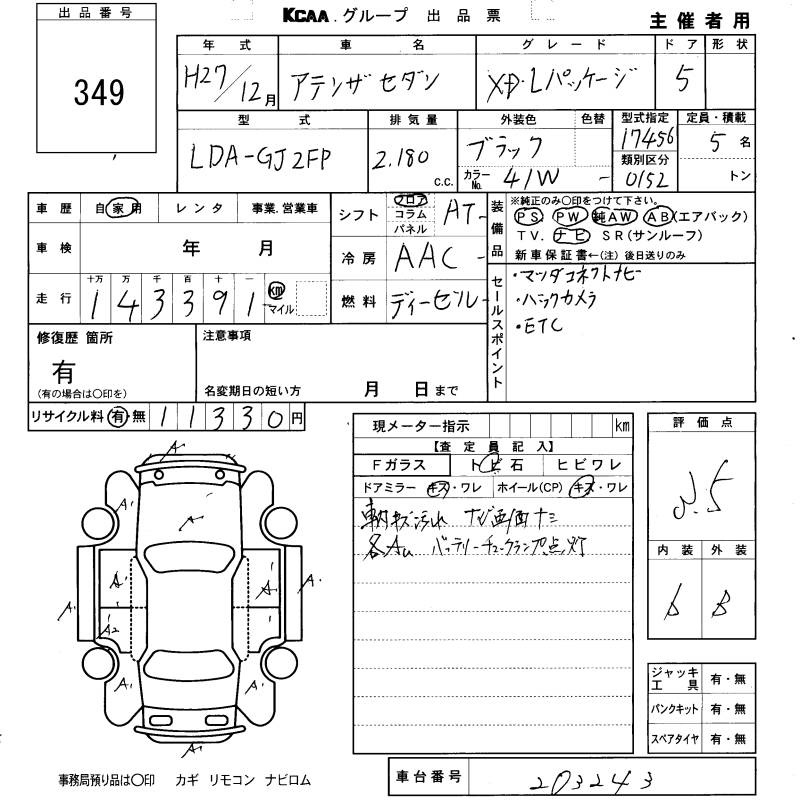 出品番号
349
KCAA.グループ 出品票
主催者用
年式 車名 グレード ドア 形状
H27/12月 アテンザセダン XD・Lパッケージ 5
型式 排気量 外装色 色替 型式指定 定員・積載
LDA-GJ2FP 2.180 c.c. ブラック 17456 5名
カラーNo. 41W - 類別区分 0152 トン
車歴 自家用 レンタ 事業.営業車
車検 年 月
走行 十万 万 千 百 十 一
143391- km マイル
シフト フロア コラム パネル AT-
冷房 AAC-
燃料 ディーゼル-
装備品 ※純正のみ○印をつけて下さい。
PS. PW 純AW AB(エアバック)
TV. ナビ SR(サンルーフ)
新車保証書←(注)後日送りのみ
セールスポイント
・マツダコネクトナビー
・バックカメラ
・ETC
修復歴 箇所
有
(有の場合は○印を)
注意事項
名変期日の短い方 月 日まで
リサイクル料 有・無 11330円
現メーター指示 km
【査定員記入】
Fガラス トビ石 ヒビワレ
ドアミラー キズ・ワレ ホイール(CP) キズ・ワレ
車内キズ汚れ ナビ画面キズ
各A バッテリーチェックランプ点灯
評価点
内装 外装
B
A
A1 A1
A
A1 A1
A1 A1
A2
A1 A1
A1
ジャッキ 工具 有・無
パンクキット 有・無
スペアタイヤ 有・無
事務局預り品は○印 カギ リモコン ナビロム
車台番号 203243